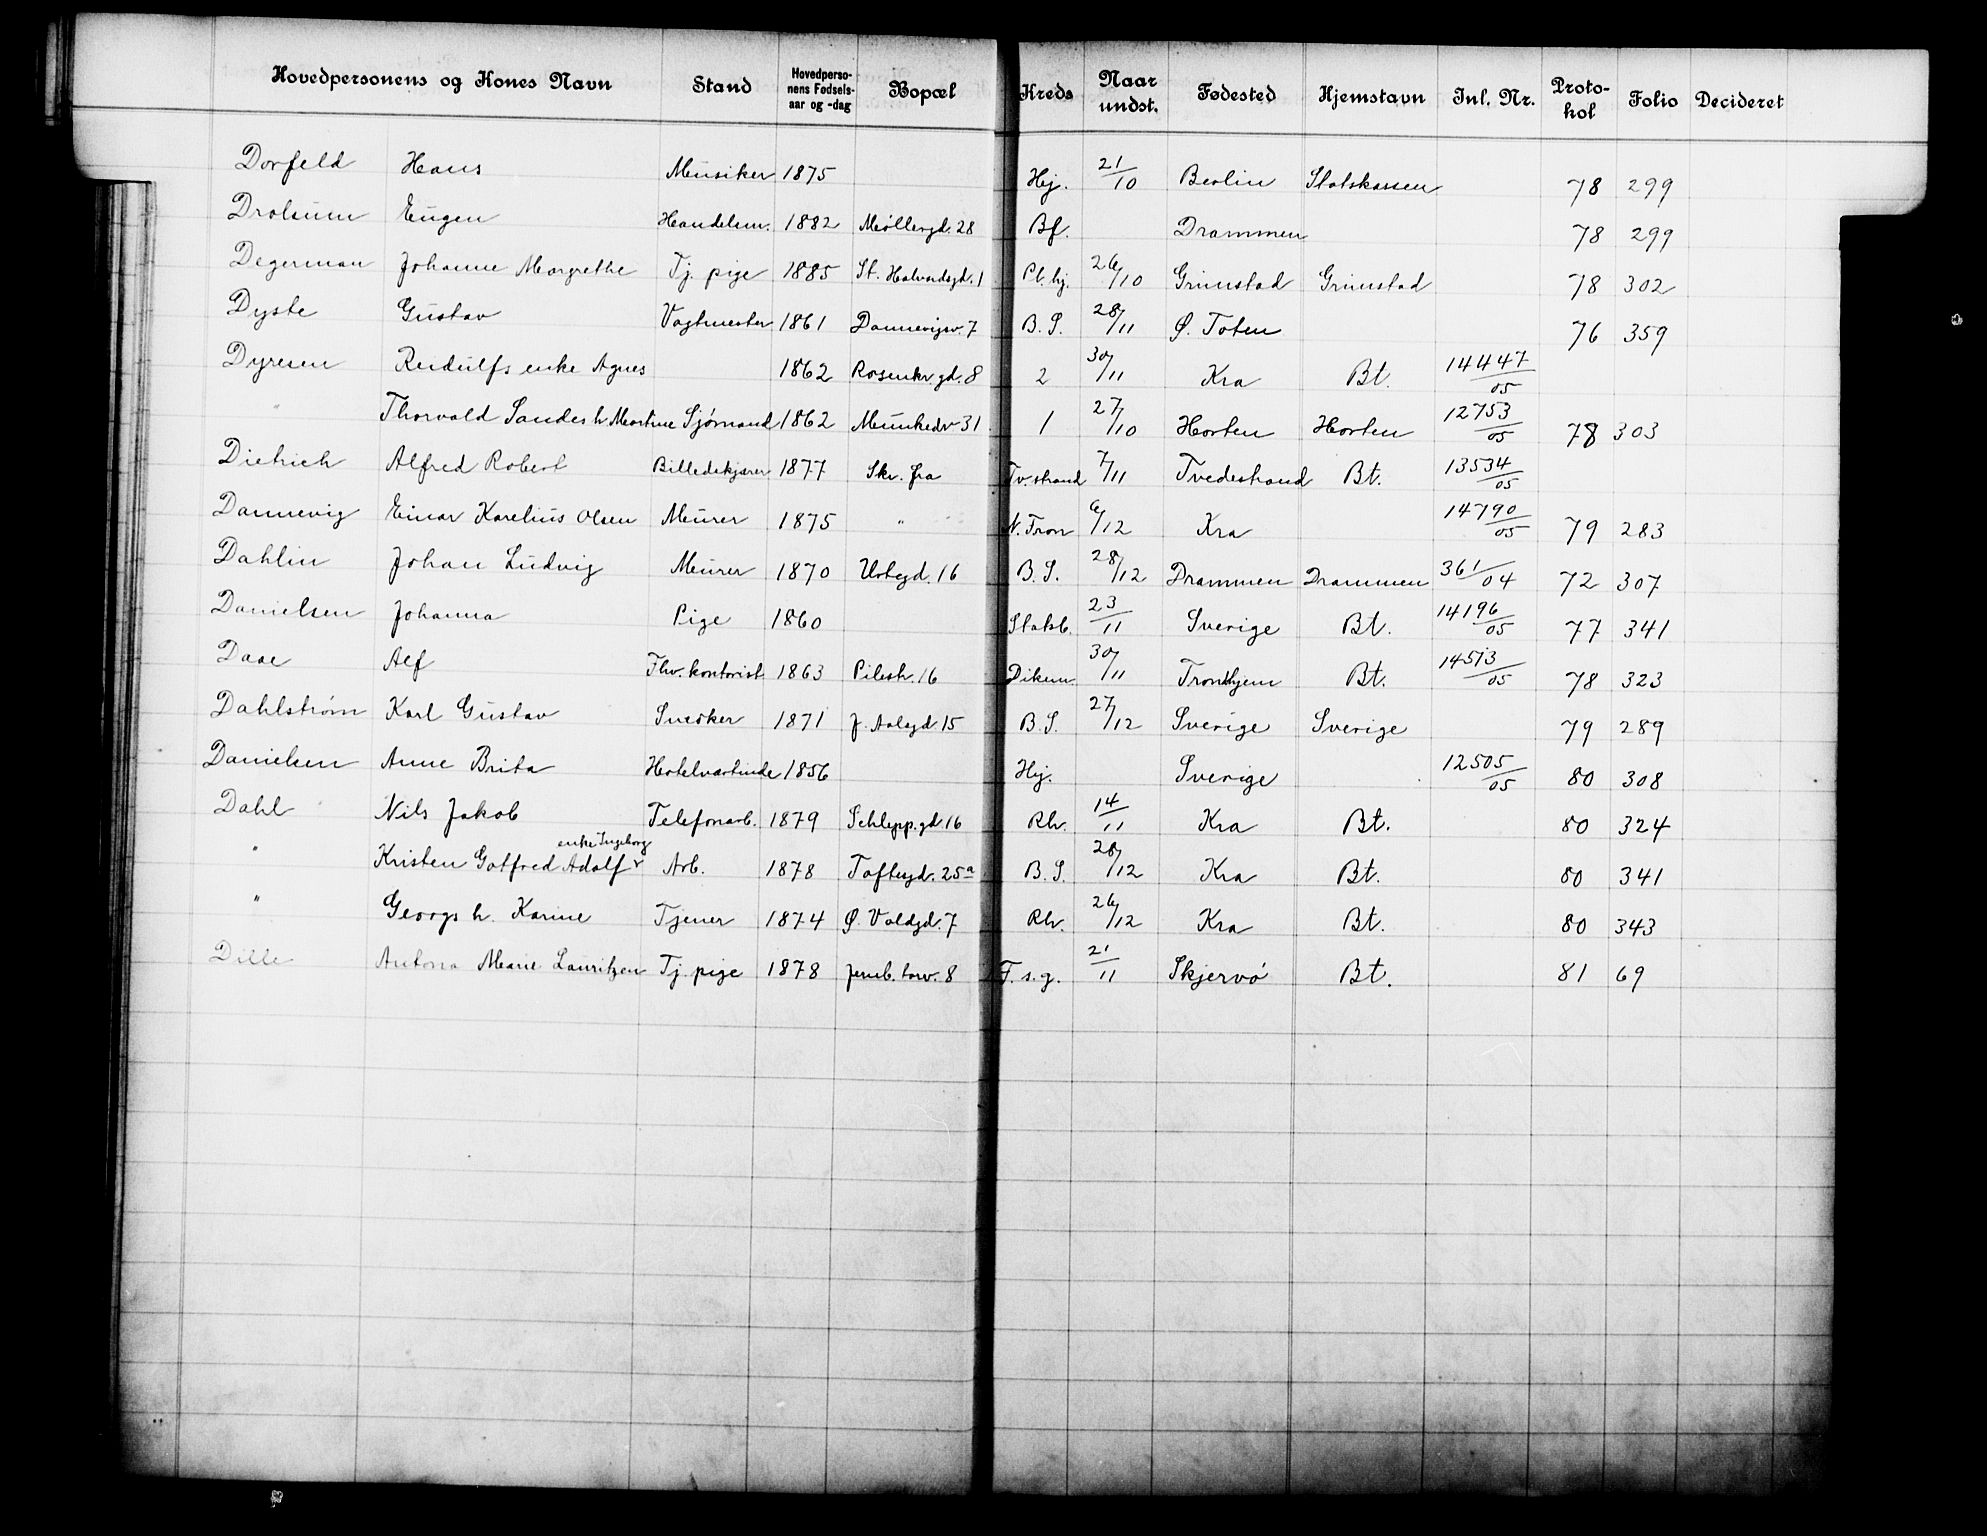 Hovedpersonens og Kones Navn Stand Hovedperso-nens Fødsels-aar og -dag Bopæl Kreds Naar undst. Fødested Hjemstavn Inl. Nr. Proto-kol Folio Decideret
Dorfeld Hans Musiker 1875 Hj. 21/10 Berlin Statskassen 78 299
Drolsum Eugen Handelsm. 1882 Møllergd. 28 Bf. Drammen 78 299
Degerman Johanne Margrethe Tj. pige 1885 St. Halvardsgd. 1 Pl. hj. 26/10 Grimstad Grimstad 78 302
Dyste Gustav Vagtmester 1861 Dannevigsv. 7 B. S. 28/11 Ø. Toten 76 359
Dyresen Reidulfs enke Agnes 1862 Rosenkr gd. 8 2 30/11 Kra Bt. 14447/05
" Thorvald Sandes h. Martine Sjømand 1862 Munkedv 31 1 27/10 Horten Horten 12753/05 78 303
Dietrich Alfred Robert Billedskjærer 1877 Skr. fra Tv. strand 7/11 Tvedestrand Bt. 13534/05
Dannevig Einar Karelius Olsen Murer 1875 " N. Tron 6/12 Kra 14790/05 79 283
Dahlin Johan Ludvig Murer 1870 Urtegd. 16 B. S. 28/12 Drammen Drammen 361/04 72 307
Danielsen Johanna Pige 1860 Statsb. 23/11 Sverige Bt. 14196/05 77 341
Daae Alf Fhv. kontorist 1863 Pilestr. 16 Dikem. 30/11 Tronthjem Bt. 14513/05 78 323
Dahlstrøm Karl Gustav Snedker 1871 J. Aalsgd 15 B. S. 27/12 Sverige Sverige 79 289
Danielsen Anne Brita Hotelværtinde 1856 Hj. Sverige 12505/05 80 308
Dahl Nils Jakob Telefonarb. 1879 Schlepp.gd. 16 Rh. 14/11 Kra Bt. 80 324
enke Ingeborg
" Kristen Gotfred Adolf Arb. 1878 Toftesgd. 25a B. S. 28/12 Kra Bt. 80 341
" Georgs h. Karine Tjener 1874 Ø. Voldgd. 7 Rh. 26/12 Kra Bt. 80 343
Dille Antona Marie Lauritzen Tj. pige 1878 Jernb. torv. 8 F. s. g. 21/11 Skjervø Bt. 81 69